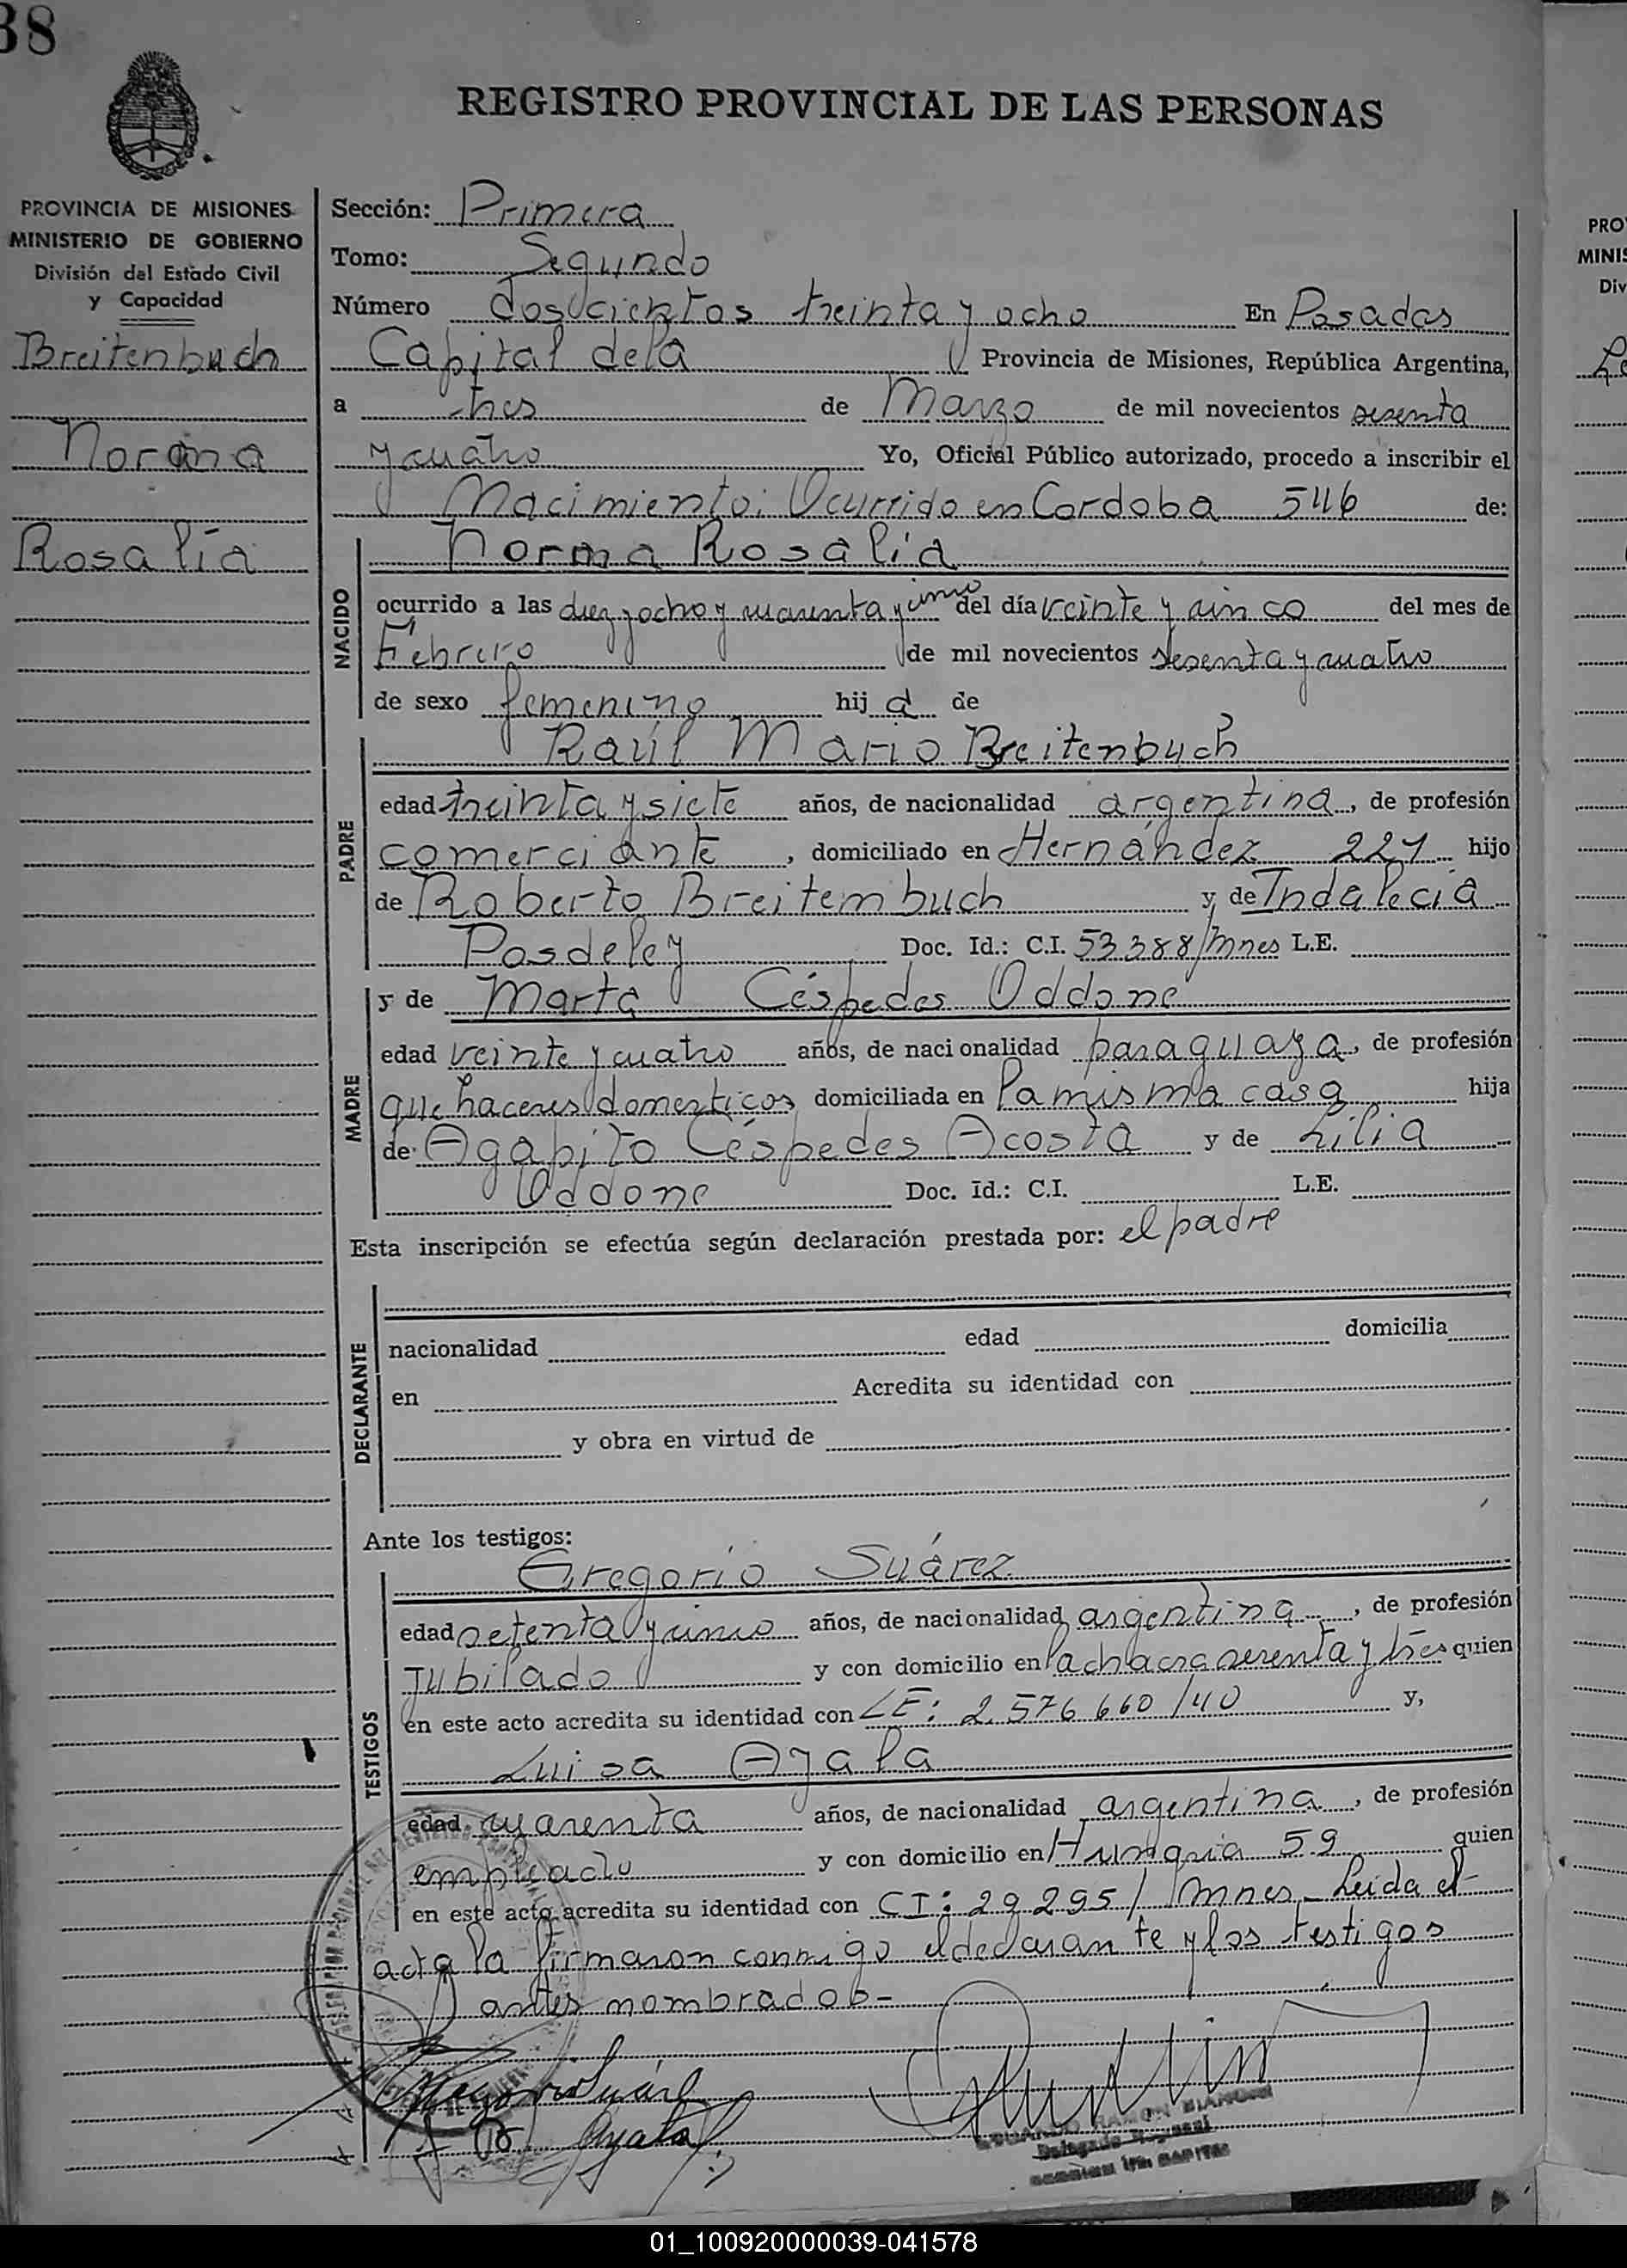 38
REGISTRO PROVINCIAL DE LAS PERSONAS
PROVINCIA DE MISIONES
MINISTERIO DE GOBIERNO
División del Estado Civil
y Capacidad
Breitenbuch
Norma
Rosalía
Sección: Primera
Tomo: Segundo
Número doscientos treinta y ocho En Posadas
Capital de la Provincia de Misiones, República Argentina,
a tres de Marzo de mil novecientos sesenta
y cuatro Yo, Oficial Público autorizado, procedo a inscribir el
Nacimiento: Ocurrido en Cordoba 546 de:
NACIDO
Norma Rosalía
ocurrido a las diez y ocho y cuarenta y cinco del día veinte y cinco del mes de
Febrero de mil novecientos sesenta y cuatro
de sexo femenino hij a de
PADRE
Raúl Mario Breitenbuch
edad treinta y siete años, de nacionalidad argentina, de profesión
comerciante, domiciliado en Hernández 221 hijo
de Roberto Breitembuch y de Indalecia
Posdeley Doc. Id.: C.I. 53388/Mnes L.E.
MADRE
y de Marta Céspedes Oddone
edad veinte y cuatro años, de nacionalidad paraguaya, de profesión
quehaceres domesticos domiciliada en la misma casa hija
de Agapito Céspedes Acosta y de Lilia
Oddone Doc. Id.: C.I. L.E.
Esta inscripción se efectúa según declaración prestada por: el padre
DECLARANTE
nacionalidad edad domicilia
en Acredita su identidad con
y obra en virtud de
Ante los testigos:
TESTIGOS
Gregorio Suárez
edad setenta y uno años, de nacionalidad argentina, de profesión
Jubilado y con domicilio en la chacra sesenta y tres quien
en este acto acredita su identidad con LE: 2.576.660/40 y,
Luisa Ayala
edad cuarenta años, de nacionalidad argentina, de profesión
empleado y con domicilio en Hungría 59 quien
en este acto acredita su identidad con CI: 29295/Mnes_ Leida el
acta la firmaron conmigo el declarante y los testigos
antes nombrados-
Gregorio Suárez
Ayala
EDUARDO RAMON BIANCHI
Delegado Regional
PRO
MINIS
Div
01_100920000039-041578